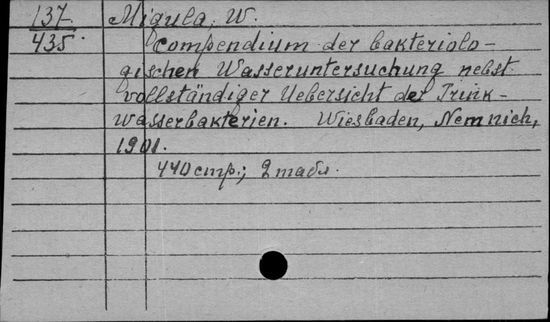 137
435
Migula, W.
Compendium der bakteriolo-
gischen Wasseruntersuchung nebst
vollständiger Uebersicht der Trink-
wasserbakterien. Wiesbaden, Nemnich,
1901.
440 стр.; 2 табл.